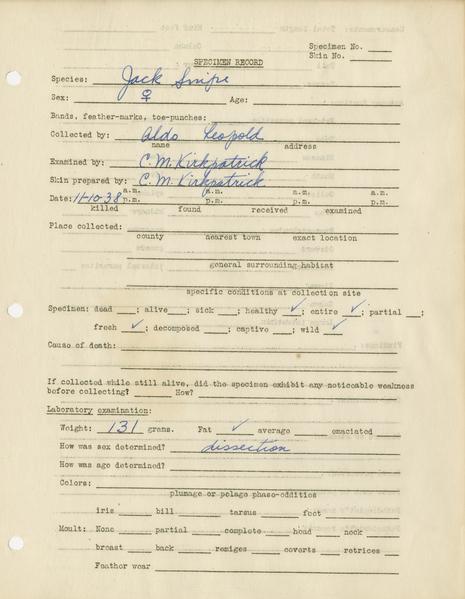 Specimen No. ____
Skin No. ____
SPECIMEN RECORD
Species: Jack Snipe
Sex: ♀ Age:
Bands, feather-marks, toe-punches:
Collected by: Aldo Leopold
name address
Examined by: C.M. Kirkpatrick
Skin prepared by: C.M. Kirkpatrick
Date: 11-10-38 a.m. p.m. a.m. p.m. a.m. p.m. a.m. p.m.
killed found received examined
Place collected:
county nearest town exact location
general surrounding habitat
specific conditions at collection site
Specimen: dead ___; alive___; sick ___; healthy ✓; entire ✓; partial ___;
fresh ✓; decomposed ___; captive ___; wild ✓
Cause of death:
If collected while still alive, did the specimen exhibit any noticeable weakness
before collecting? ____ How?
Laboratory examination:
Weight: 131 grams. Fat ✓ average ____ emaciated ____
How was sex determined? dissection
How was age determined?
Colors:
plumage or pelage phase-oddities
iris ____ bill ____ tarsus ____ foot
Moult: None ____ partial ____ complete ____ head ____ neck ____
breast ____ back ____ remiges ____ coverts ____ retrices ____
Feather wear